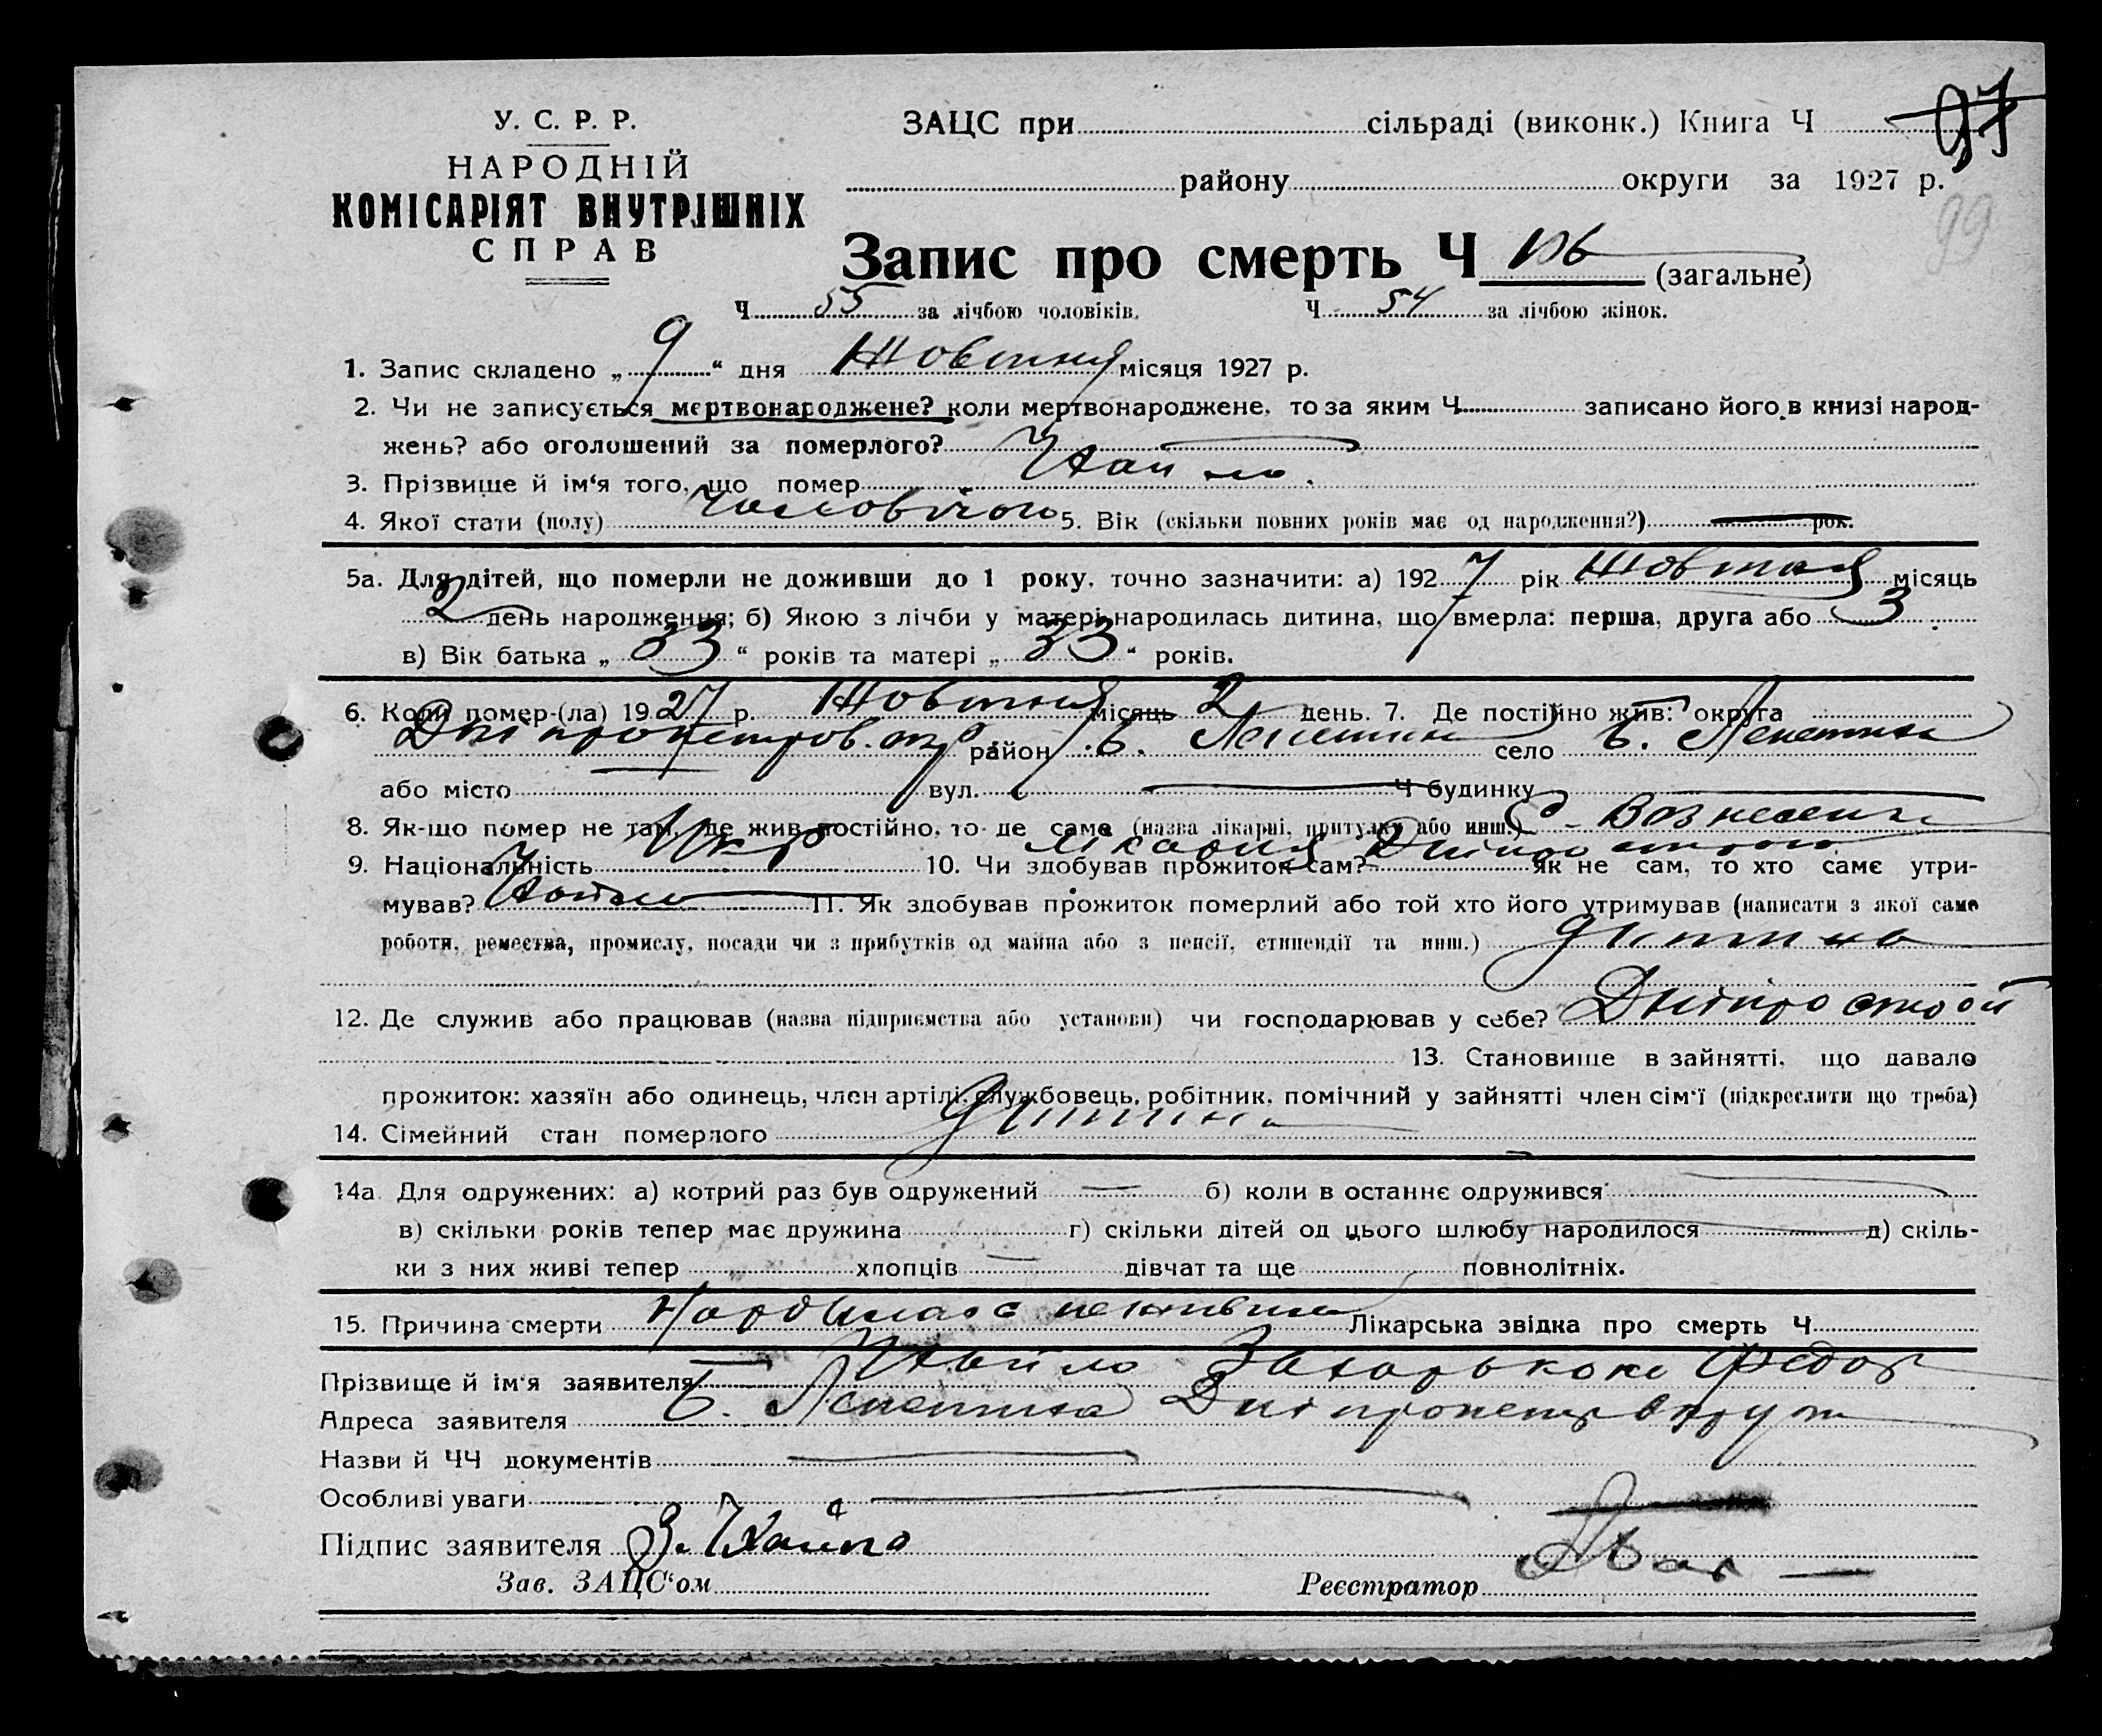 97
У. С. Р. Р. ЗАЦС при сільраді (виконк.) Книга Ч
НАРОДНІЙ
КОМІСАРІЯТ ВНУТРІШНІХ
СПРАВ
району округи за 1927 р.
99
Запис про смерть Ч 106 (загальне)
Ч 55 за лічбою чоловіків. Ч 54 за лічбою жінок.
1. Запис складено „ 9 “ дня Жовтня місяця 1927 р.
2. Чи не записується мертвонароджене? коли мертвонароджене, то за яким Ч записано його в книзі народ-
жень? або оголошений за померлого?
3. Прізвище й ім‘я того, що помер
4. Якої стати (полу) Чоловічого 5. Вік (скільки повних років має од народження?) рок.
5а. Для дітей, що померли не доживши до 1 року, точно зазначити: а) 192 7 рік Жовтня місяць
2 день народження; б) Якою з лічби у матері народилась дитина, що вмерла: перша, друга або 3
в) Вік батька „ 33 “ років та матері „ 33 “ років.
6. Коли помер-(ла) 1927 р. Жовтня місяць 2 день. 7. Де постійно жив: округа
Дніпропетров. район Б. Лепетиха село Б. Лепетиха
або місто вул. Ч будинку
8. Як-що помер не там, де жив постійно, то де саме (назва лікарні, притулку або инш.) С-Вознесенка
лікарня Дніпростою
9. Національність Укр 10. Чи здобував прожиток сам? Як не сам, то хто саме утри-
мував? 11. Як здобував прожиток померлий або той хто його утримував (написати з якої саме
роботи, ремества, промислу, посади чи з прибутків од майна або з пенсії, стипендії та инш.) дитина
12. Де служив або працював (назва підприємства або установи) чи господарював у себе? Дніпрострой
13. Становище в зайнятті, що давало
прожиток: хазяїн або одинець, член артілі, службовець, робітник, помічний у зайнятті член сім‘ї (підкреслити що треба)
14. Сімейний стан померлого дитина
14а. Для одружених: а) котрий раз був одружений б) коли в останнє одружився
в) скільки років тепер має дружина г) скільки дітей од цього шлюбу народилося д) скіль-
ки з них живі тепер хлопців дівчат та ще повнолітніх.
15. Причина смерти Лікарська звідка про смерть Ч
Прізвище й ім‘я заявителя Федор
Адреса заявителя Б. Лепетиха Дніпропетр округ
Назви й ЧЧ документів
Особливі уваги
Підпис заявителя
Зав. ЗАЦС‘ом Реєстратор